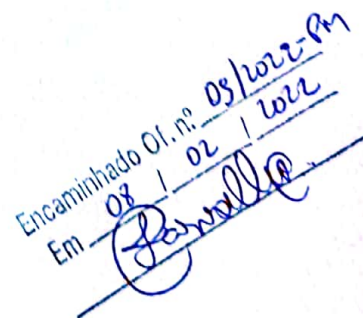 Encaminhado Of. n.º 09/2022-PM
Em 08 / 02 / 2022